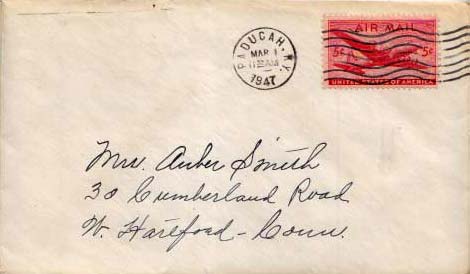 PADUCAH, KY.
MAR 1
11 30 AM
1947
AIR MAIL
5¢ 5¢
UNITED STATES OF AMERICA
Mrs. Auber Smith
30 Cumberland Road
W. Hartford - Conn.